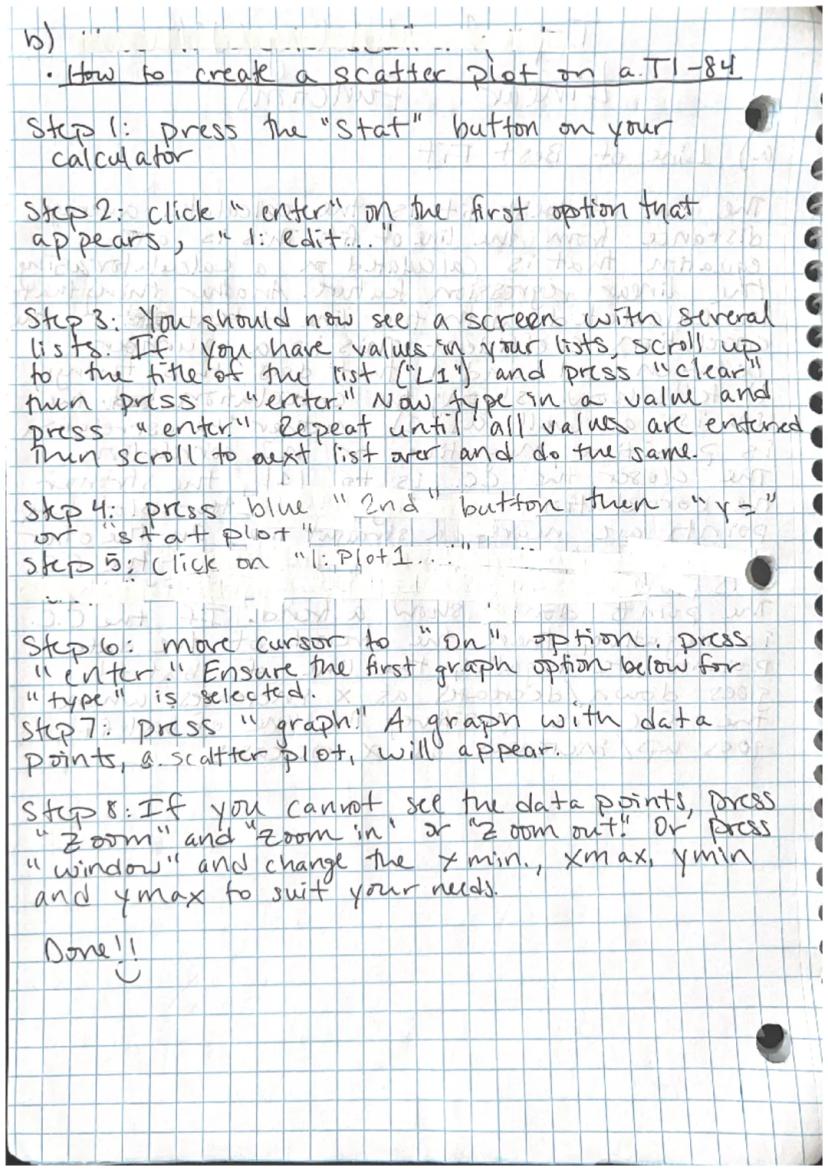 b)
• How to create a scatter plot on a TI-84
Step 1: press the "Stat" button on your
calculator
Step 2: click "enter" on the first option that
appears, "1: edit..."
Step 3: You should now see a screen with several
lists. If you have values in your lists, scroll up
to the title of the list ("L1") and press "clear"
then press "enter." Now type in a value and
press "enter." Repeat until all values are entered
Then scroll to next list over and do the same.
Step 4: press blue "2nd" button then "y="
or "stat plot"
Step 5: Click on "1: Plot1....."
Step 6: move cursor to "On" option. press
"enter." Ensure the first graph option below for
"type" is selected.
Step 7: press "graph." A graph with data
points, a scaltter plot, will appear.
Step 8: If you cannot see the data points, press
"Zoom" and "Zoom in" or "Zoom out." Or press
"window" and change the xmin., xmax, ymin
and ymax to suit your needs.
Done!!